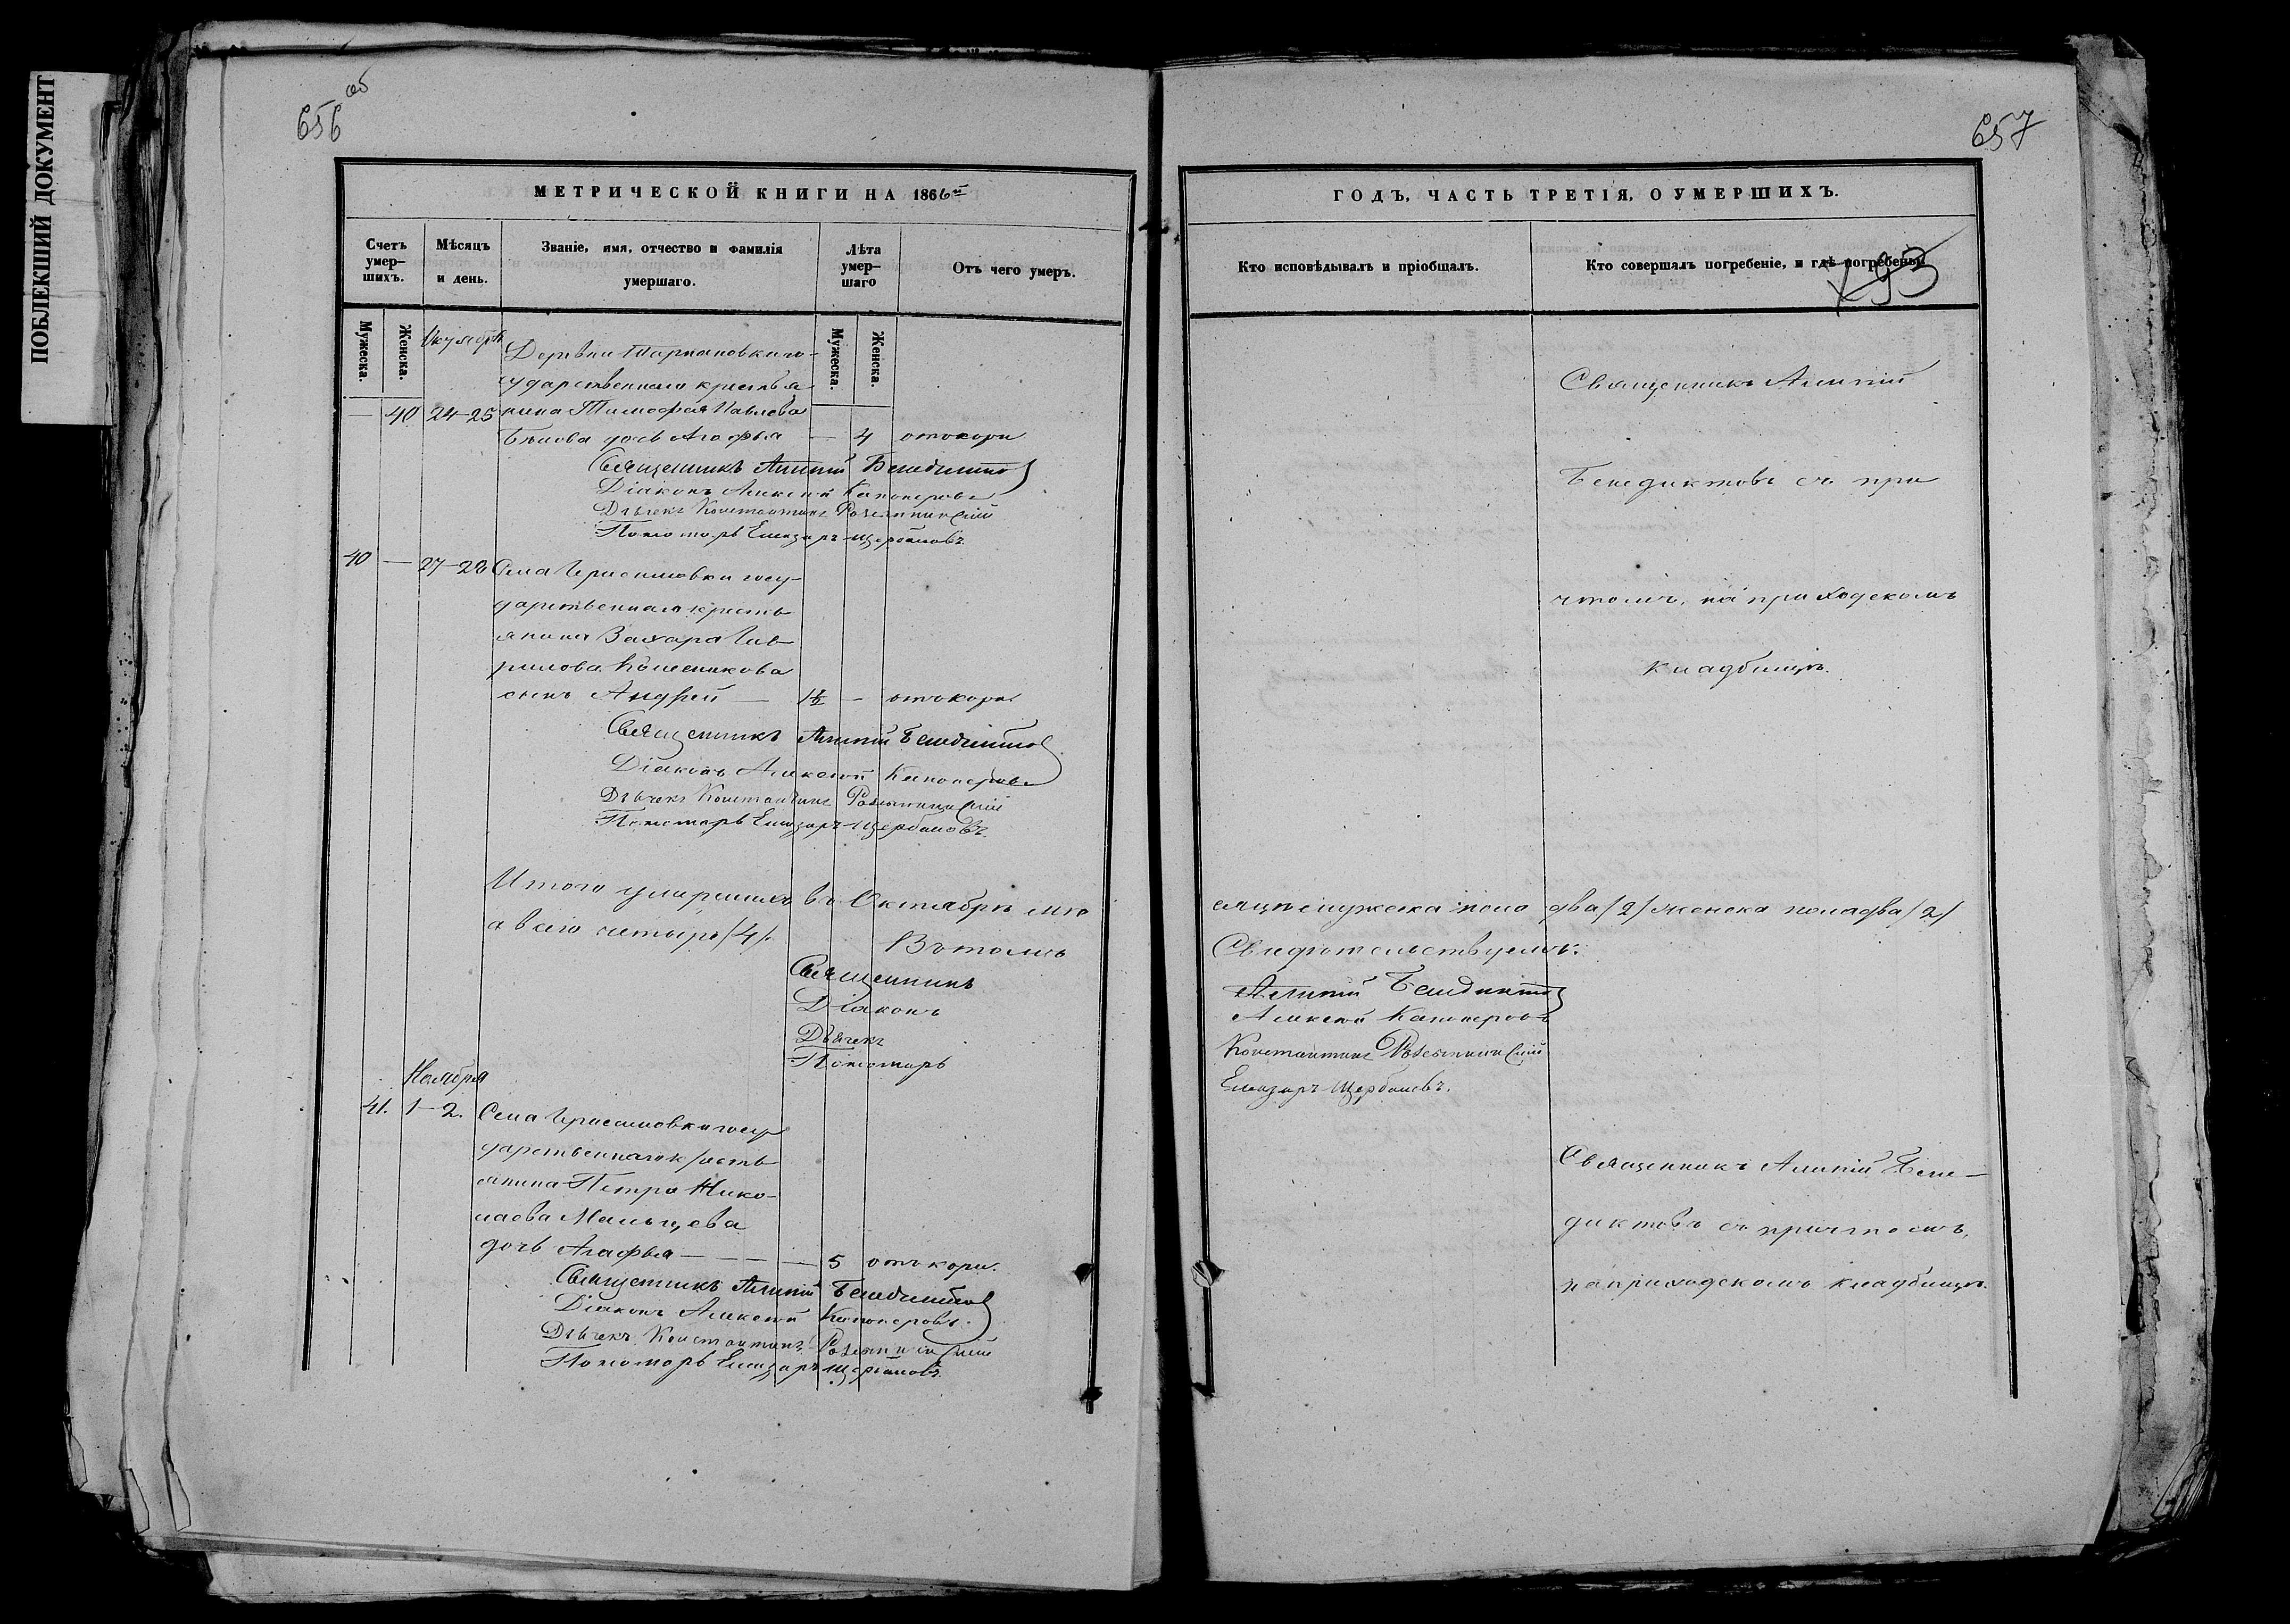 ПОБЛЕКШИЙ ДОКУМЕНТ
656 об
МЕТРИЧЕСКОЙ КНИГИ НА 1866й
Счетъ умер-шихъ.
Мѣсяцъ и день.
Званіе, имя, отчество и фамилія умершаго.
Лѣта умер-шаго
Отъ чего умеръ.
Мужеска.
Женска.
Мужеска.
Женска.
Октября
Деревни го-
сударственнаго крестья-
— 40 24-25 нина Тимофея Павлова
Бѣлова дочь Агафья — 4 отъ кори
Священникъ Алипій Бенедиктов
Діаконъ Алексѣй Каноперовъ
Дьячекъ Константинъ
Пономарь Елизаръ Щербаковъ
40 — 27-28 Села Герасимовки госу-
дарственнаго кресть-
янина Захара Гав-
рилова Колесникова
сынъ Андрей — 1½ — отъ кори
Священникъ Алипій Бенедиктов
Діаконъ Алексѣй Каноперовъ
Дьячекъ Константинъ
Пономарь Елизаръ Щербаковъ.
Итого умершихъ въ Октябрѣ мѣ-
а всего четыре /4/.
Въ томъ
Священникъ
Діаконъ
Дьячекъ
Пономарь
Ноября
41. 1-2. Села Герасимовки госу-
дарственнаго кресть-
янина Петра Нико-
лаева Мальцева
дочь Агафья — — — 5 отъ кори.
Священникъ Алипій Бенедиктов
Діаконъ Алексѣй Каноперовъ.
Дьячекъ Константинъ
Пономарь Елизаръ Щербаковъ.
657
ГОДЪ, ЧАСТЬ ТРЕТІЯ, О УМЕРШИХЪ.
Кто исповѣдывалъ и пріобщалъ.
Кто совершалъ погребеніе, и гдѣ погребены.
Священникъ Алипій
Бенедиктовъ съ при
чтомъ, на приходскомъ
кладбищѣ.
сяцѣ мужеска пола два /2/ женска пола два /2/
Свидѣтельствуемъ:
Алипій Бенедиктов
Алексѣй Каноперовъ
Константинъ
Елизаръ Щербаковъ.
Священникъ Алипій Бене-
диктовъ съ причтомъ,
на приходскомъ кладбищѣ.